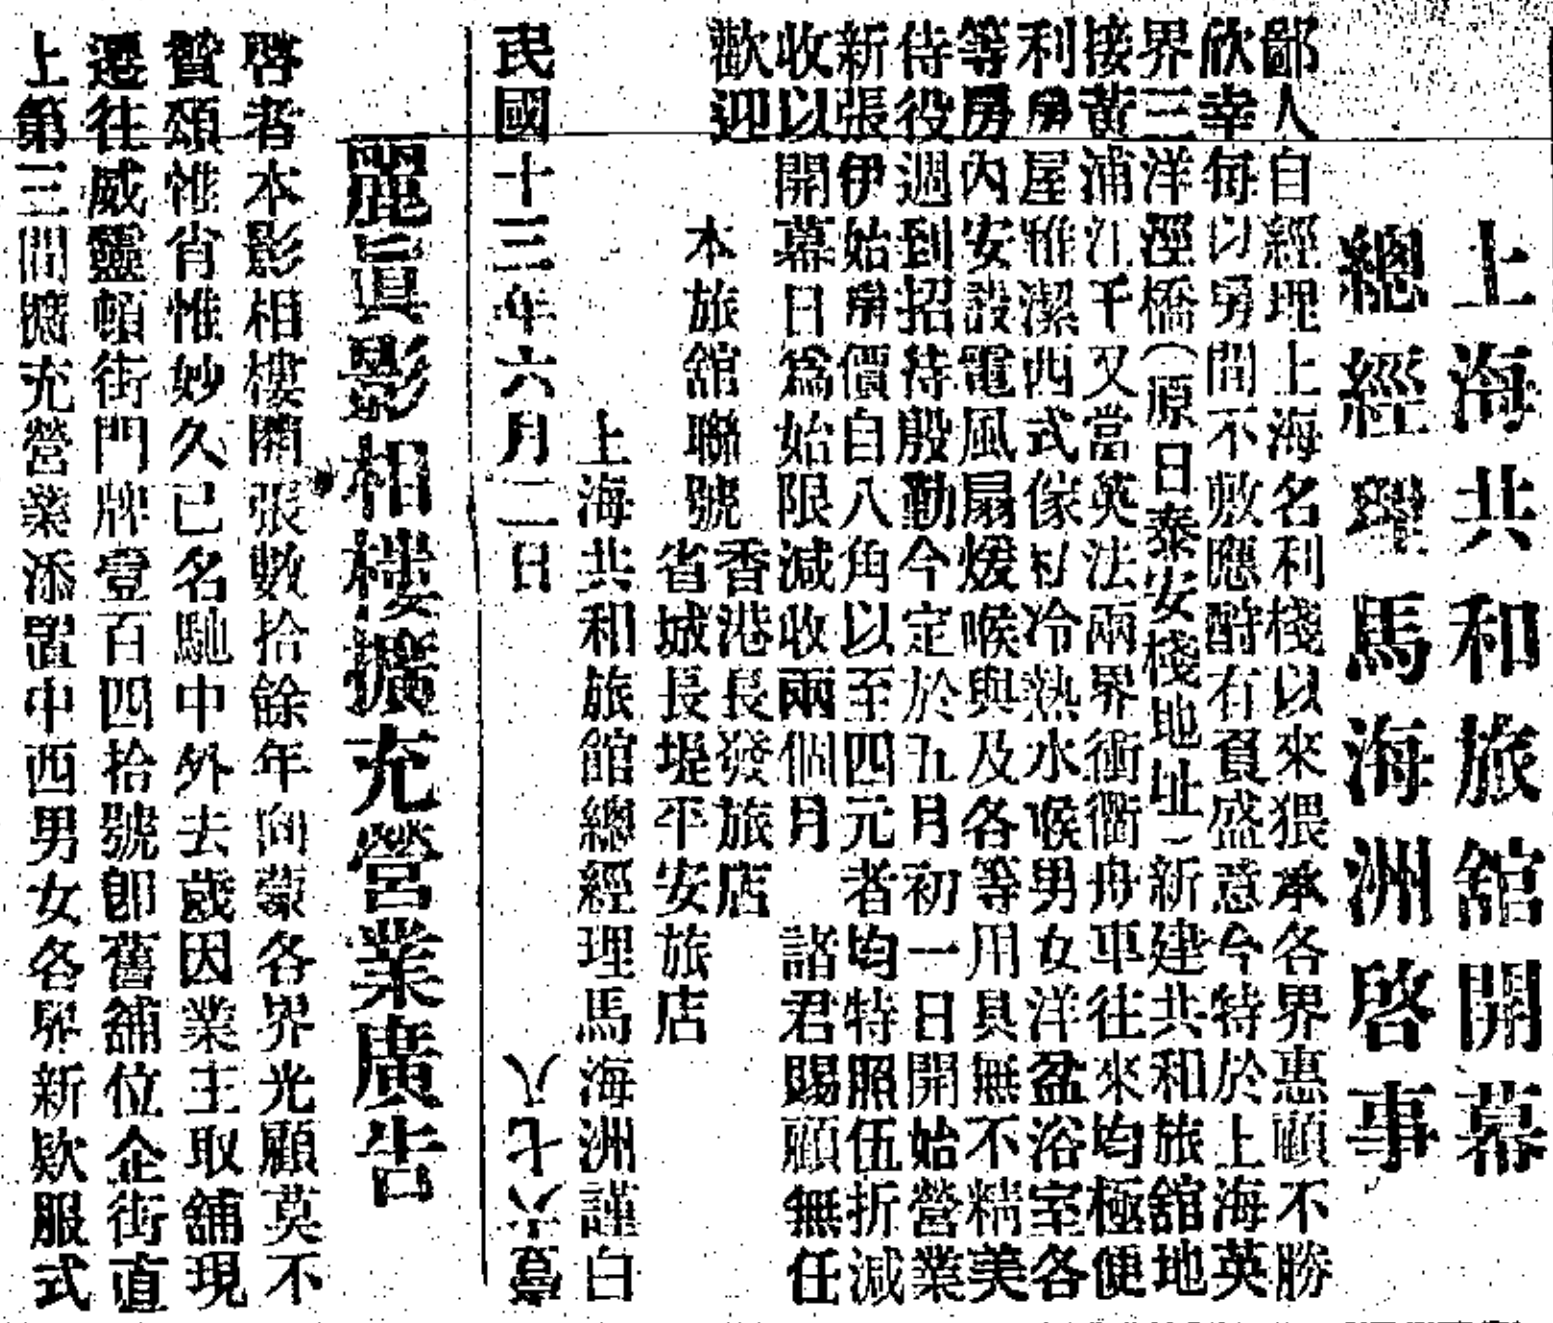 上海共和旅舘開幕
總經理馬海洲啓事
鄙人自經理上海名利棧以來猥承各界惠顧不勝
欣幸每以房間不敷應酧有負盛意今特於上海英
界三洋涇橋(原日泰安棧地址)新建共和旅舘地
接黃浦江干又當英法兩界衝衢舟車往來均極便
利房屋雅潔西式傢私冷熱水喉男女洋盆浴室各
等房內安設電風扇煖喉與及各等用具無不精美
侍役週到招待殷勤今定於五月初一日開始營業
新張伊始房價自八角以至四元者均特照伍折減
收以開幕日爲始限減收兩個月 諸君賜顧無任
歡迎
本旅舘聯號
香港長發旅店
省城長堤平安旅店
上海共和旅館總經理馬海洲謹白
民國十三年六月二日
八七六壹
麗眞影相樓擴充營業廣告
啓者本影相樓開張數拾餘年向蒙各界光顧莫不
贊頌惟肖惟妙久已名馳中外去歲因業主取舖現
遷往威靈頓街門牌壹百四拾號卽舊舖位企街直
上第三間擴充營業添置中西男女各界新欵服式